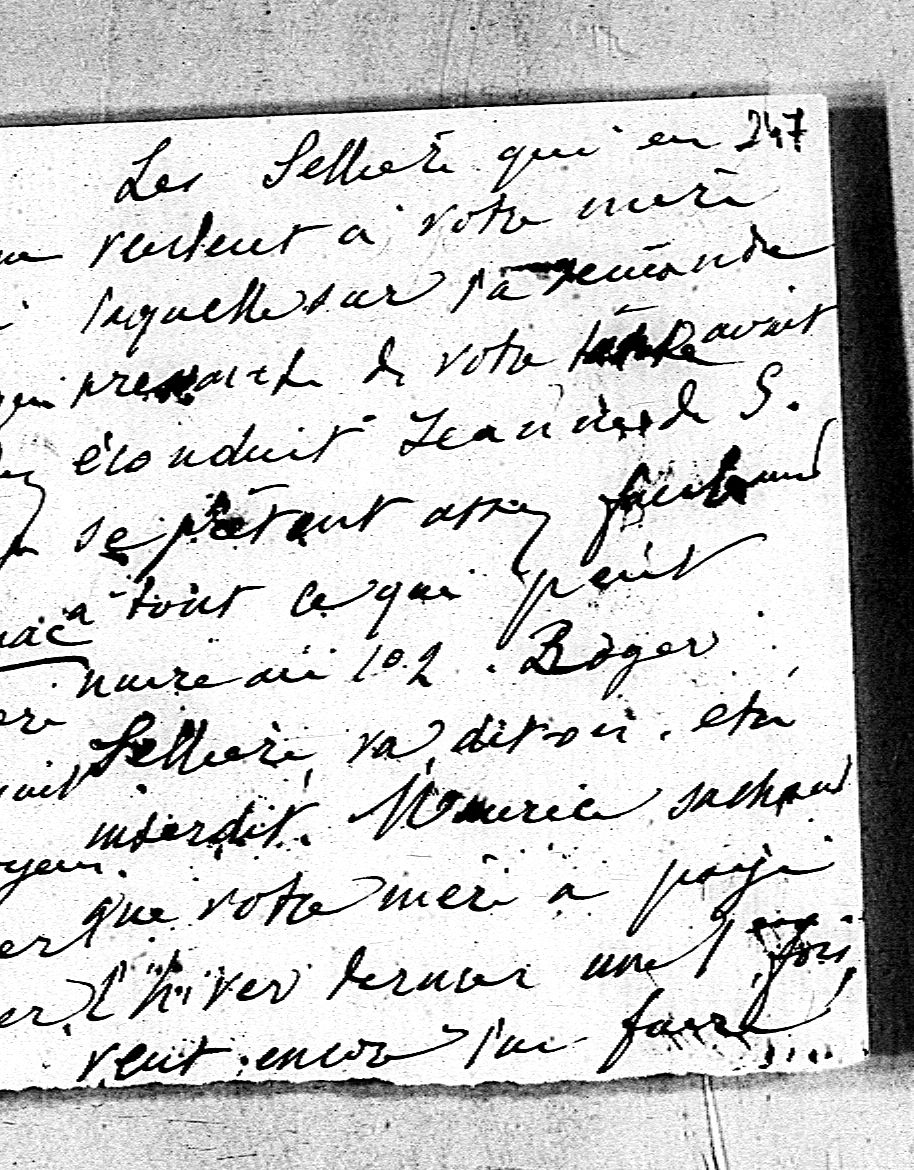 247
Les Sellière qui en
veulent à votre mère
laquelle sur la demande
pressante de votre avait
éconduit Jeanne de S.
se prêtant assez facilement
à tout ce qui peut
nuire au 102. Roger
Sellière, va, dit-on, être
interdit. Maurice sachant
que votre mère a payé
l'hiver dernier une 1 fois,
veut encore l'en faire